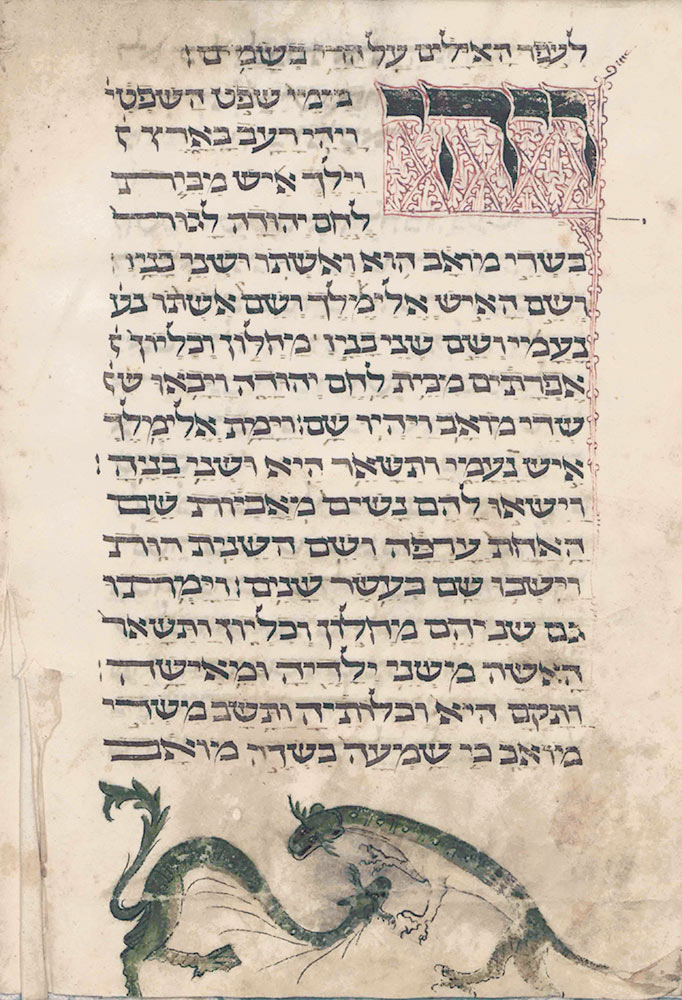 לעפר האילים על הרי בשמים׃
ויהי בימי שפט השפטי
ויהי רעב בארץ
וילך איש מבית
לחם יהודה לגור
בשדי מואב הוא ואשתו ושני בניו
ושם האיש אלימלך ושם אשתו נע
נעמי ושם שני בניו מחלון וכליון
אפרתים מבית לחם יהודה ויבאו ש
שדי מואב ויהיו שם׃ וימת אלימלך
איש נעמי ותשאר היא ושני בניה׃
וישאו להם נשים מאביות שם
האחת ערפה ושם השנית רות
וישבו שם כעשר שנים׃ וימותו
גם שניהם מחלון וכליון ותשאר
האשה משני ילדיה ומאישה׃
ותקם היא וכלותיה ותשב משדי
מואב כי שמעה בשדה מואב